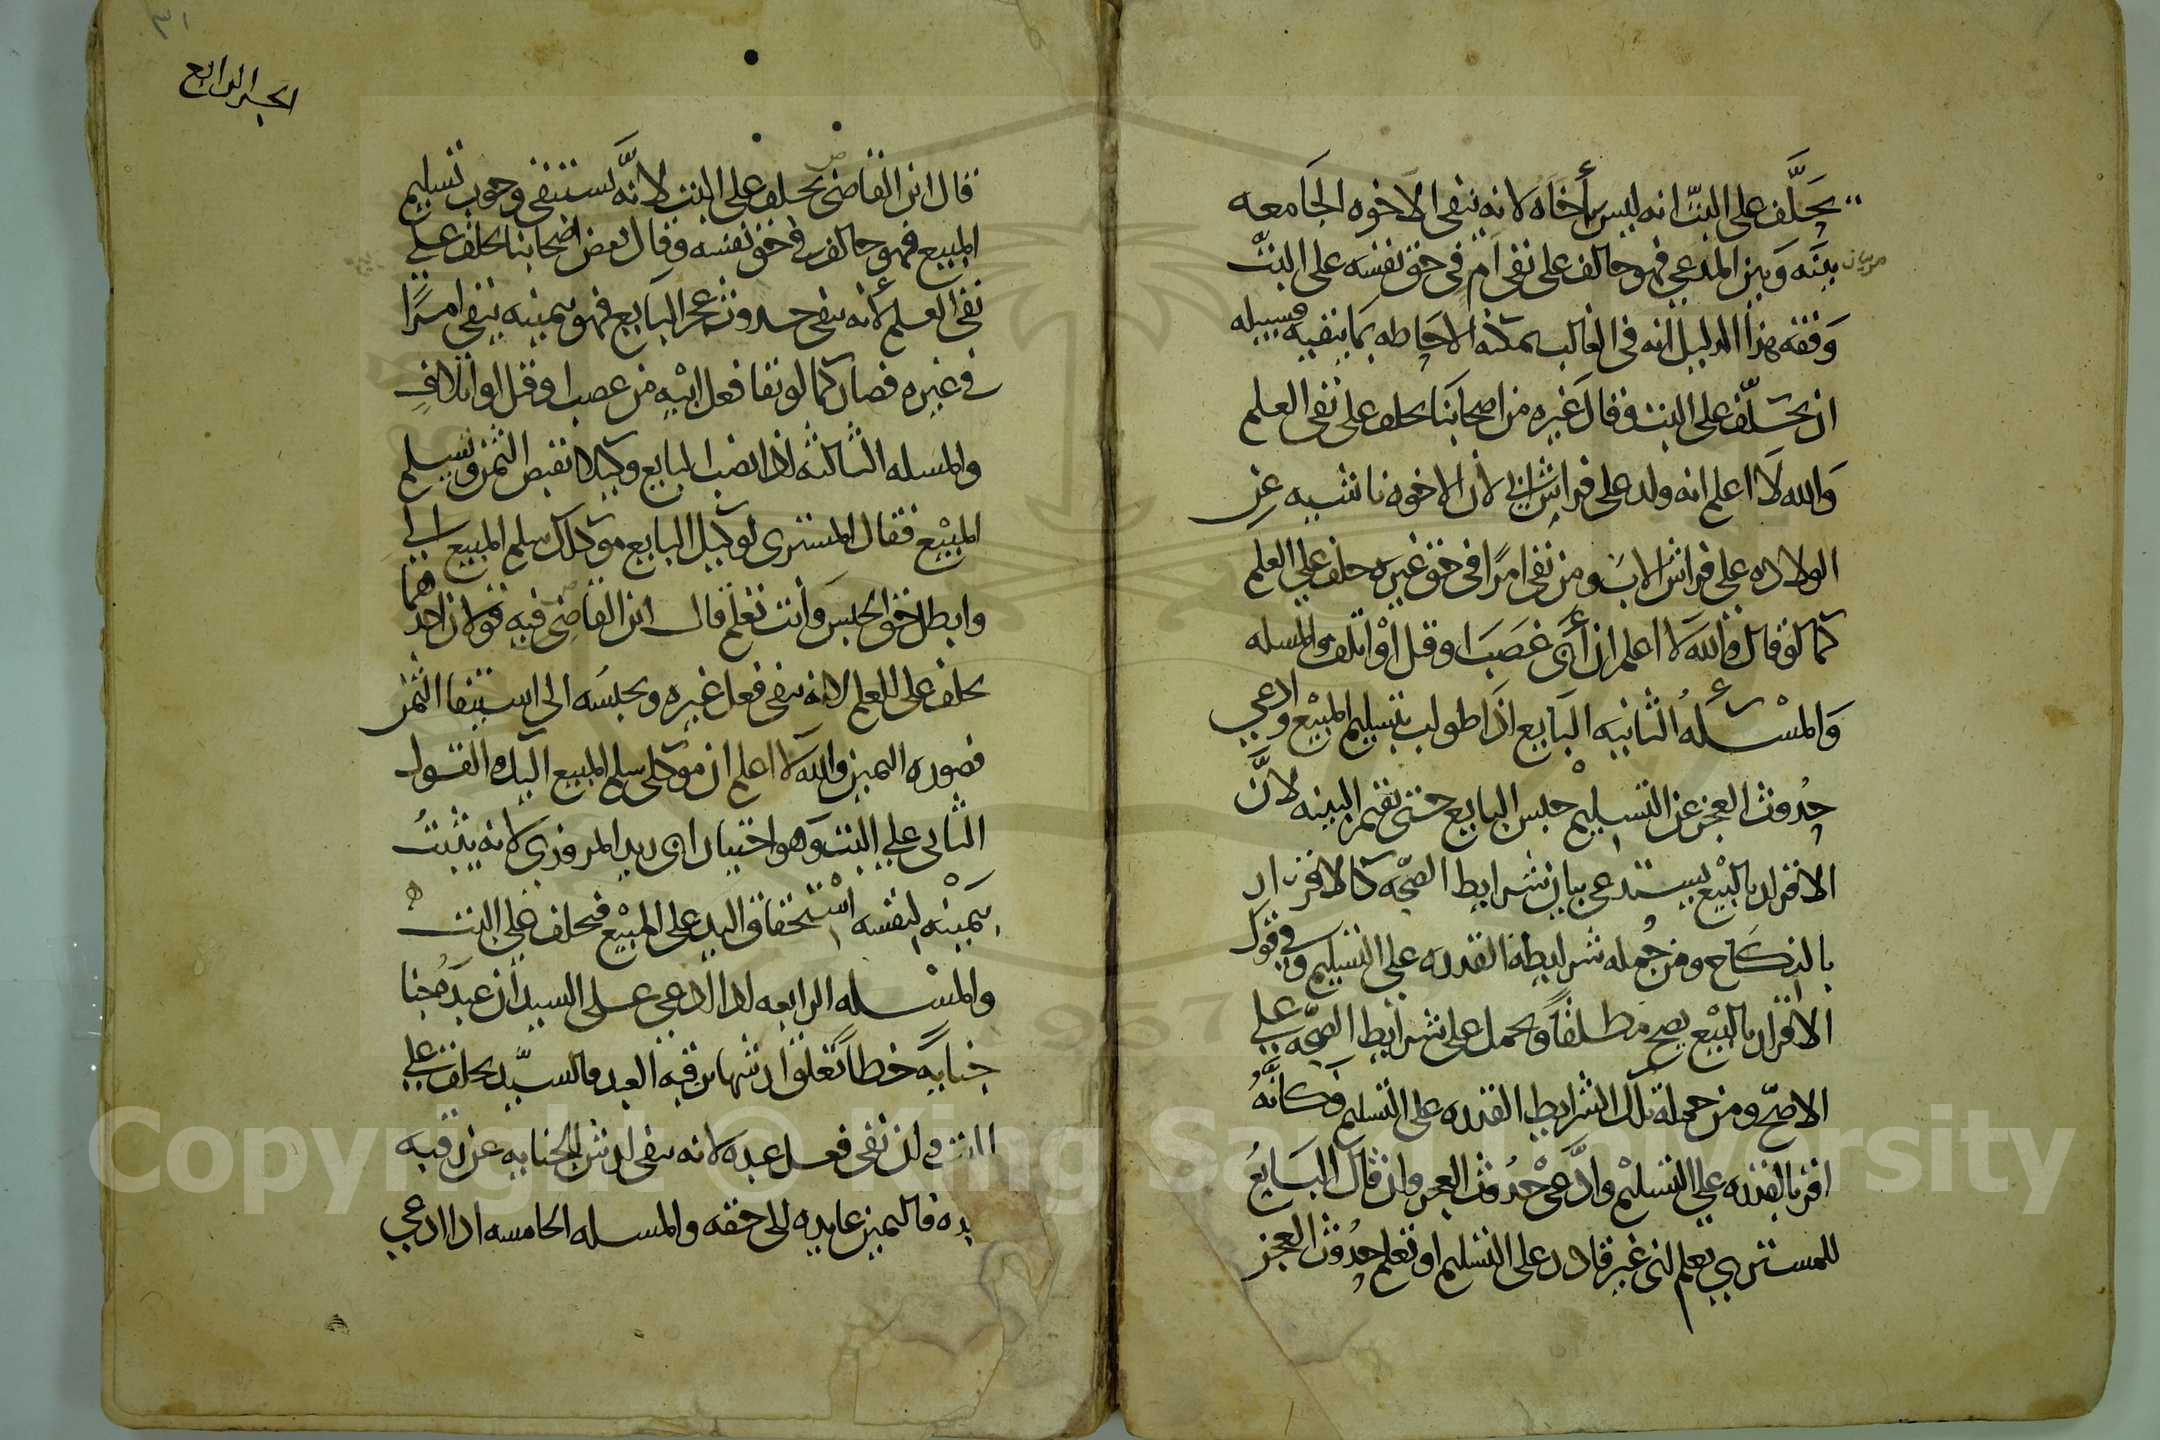 يحلف على البت انه ليس بأخاه لانه ينفى الاخوه الجامعه
بينه وبين المدعي فهو حالف على نفى امر في حق نفسه على البت
وفقه هذا الدليل انه فى الغالب يمكنه الاحاطه بما ينفيه فسبيله
ان يحلف على البت وقال غيره من اصحابنا يحلف على نفى العلم
والله لا اعلم انه ولد على فراش ابي لأن الاخوه ناشيه عن
الولاده على فراش الاب ومن نفى امرًا فى حق غيره حلف على العلم
كما لو قال والله لا اعلم ان أبى غصب او قتل أو اتلف والمسله
والمسألة الثانيه البايع اذا طولب بتسليم المبيع وادعي
حدوث العجز عن التسليم حبس البايع حتى تقيم البينه لانَّ
الاقرار بالبيع يستدعى بيان شرايط الصحّه كالاقرار
بالنكاح ومن جُمله شرايطه القدره على التسليم وفي قول
الاقرار بالبيع يصح مطلقاً ويحمل على شرايط الصحّه على
الاصحّ ومن جملة تلك الشرايط القدره على التسليم وكأنَّهُ
اقر بالقدره علي التسليم وادَّعى حُدوث العجز وان قال البايعُ
للمسترى تعلم انى غير قادر على التسليم او تعلم حدوث العجز
الجزء الرابع
قال ابن القاضى يحلف على البت لانَّه يستنفى وجوب تسليم
المبيع فهو حالف فى حق نفسه وقال بعض اصحابنا يحلف على
نفى العلم لأنه ينفى حدوث عجز البايع فهو بيمينه ينفى امرًا
فى غيره فصار كما لو نفا فعل ابيه من غصب او قتل او اتلاف
والمسله الثالثه اذا نصب البايع وكيلا بقبض الثمن وتسليم
المبيع فقال المشترى لوكيل البايع موكلك سلم المبيع الي
وابطل حق الحبس وأنت تعلم قال ابن القاضى فيه قولان احدهما
يحلف على العلم لانه ينفى فعل غيره ويحبسه الى استيفا الثمن
فصوره اليمين والله لا اعلم ان موكلى سلم المبيع اليك والقول
الثانى على البت وهو اختيار ابى زيد المروزي لانه يثبتُ
بيمينه لنفسه استحقاق اليد على المبيع فيحلف على البت
والمسله الرابعه اذا ادعي على السيد أن عبده جنا
جنايةً خطأ تعلق ارشها برقبه العبد فالسيّد يحلف على
البت فى ان نفى فعل عبده لانه ينفى ارش الجنايه عن رقبه
فاليمين عايده الى حقه والمسله الخامسه اذا ادعي
Copyright © King Saud University
1957